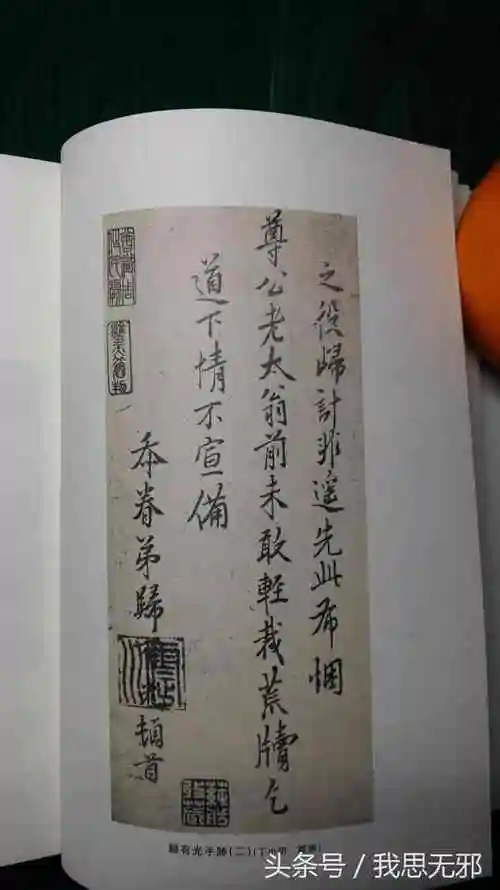 之役歸計非遥先此布悃
尊公老太翁前未敢輕裁荒牘乞
道下情不宣備
忝眷弟歸
頓首
歸有光手跡(二)
头条号/我思无邪